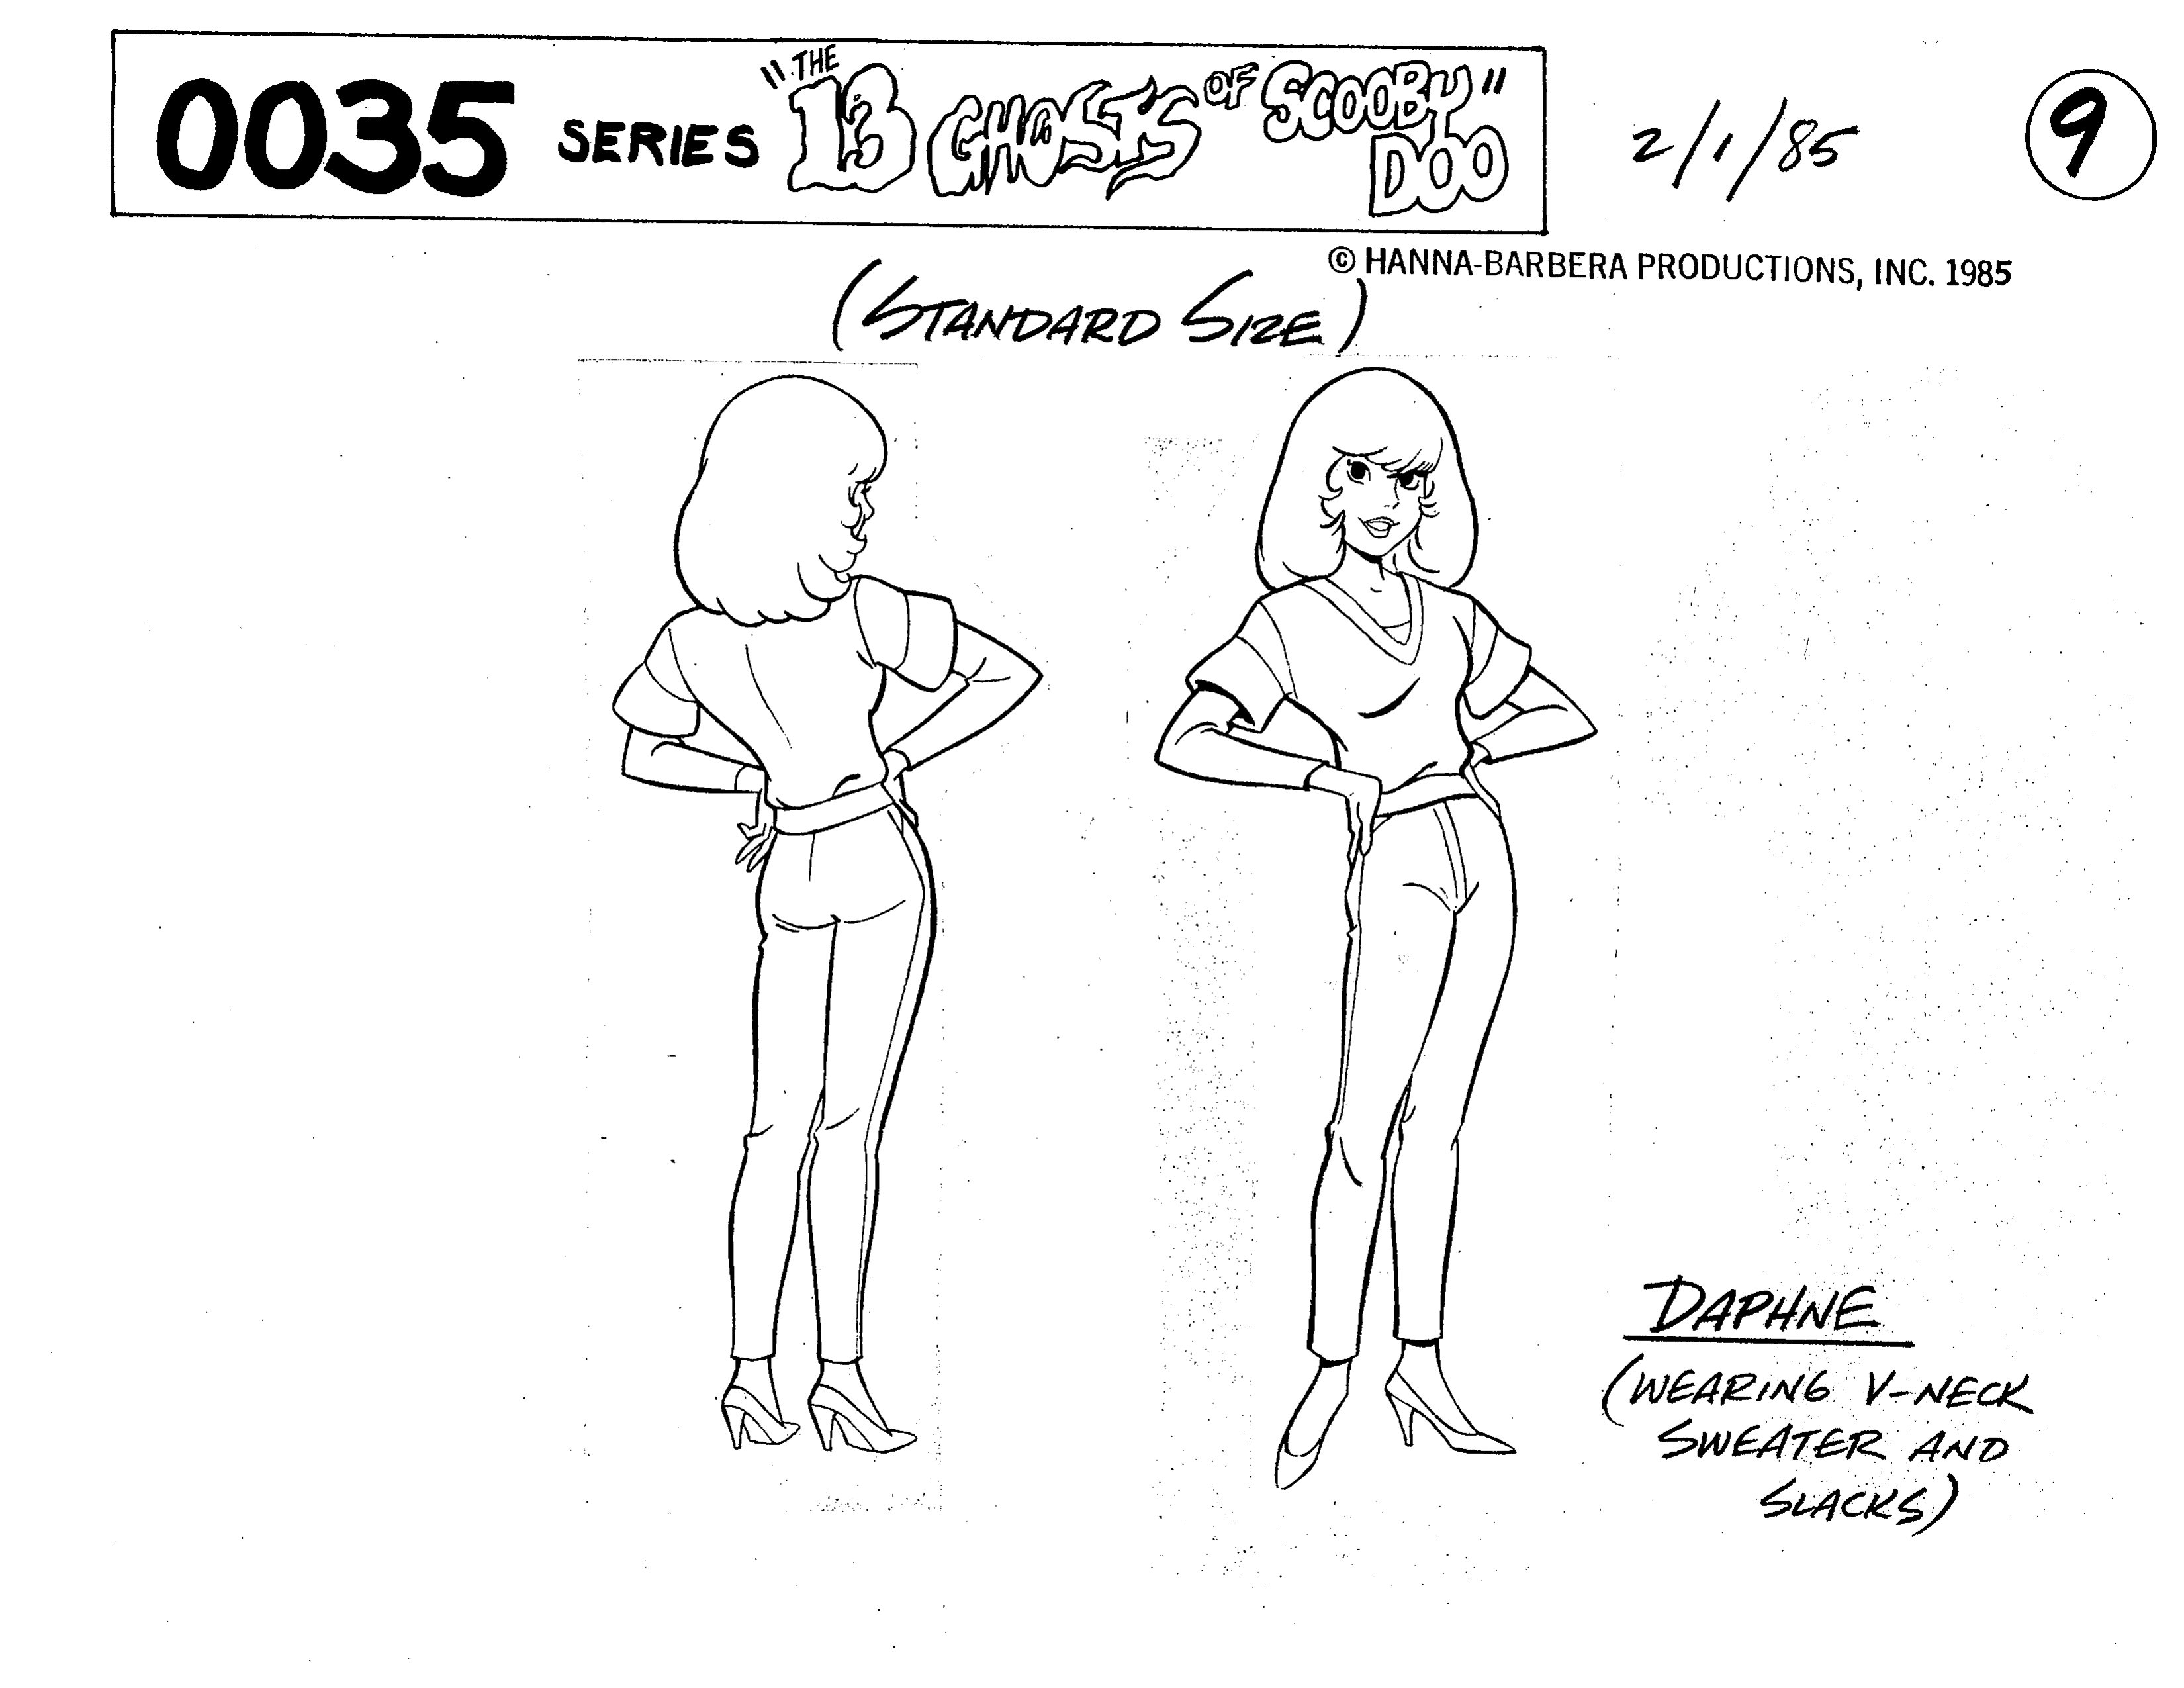 0035 SERIES "THE 13 GHOSTS OF SCOOBY DOO" 2/1/85 9
© HANNA-BARBERA PRODUCTIONS, INC. 1985
(STANDARD SIZE)
DAPHNE
(WEARING V-NECK
SWEATER AND
SLACKS)